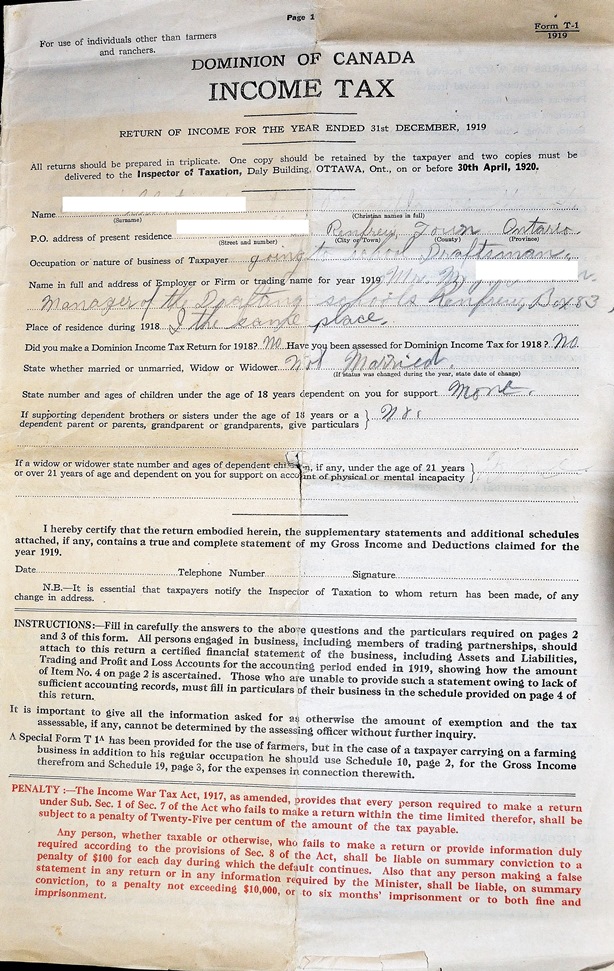 Page 1
Form T-1
1919
For use of individuals other than farmers
and ranchers.
DOMINION OF CANADA
INCOME TAX
RETURN OF INCOME FOR THE YEAR ENDED 31ST DECEMBER, 1919
All returns should be prepared in triplicate. One copy should be retained by the taxpayer and two copies must be
delivered to the Inspector of Taxation, Daly Building, OTTAWA, Ont., on or before 30th April, 1920.
Name
(Surname) (Christian names in full)
P.O. address of present residence Renfrew Town Ontario
(Street and number) (City or Town) (County) (Province)
Occupation or nature of business of Taxpayer going to school Draftsman,
Name in full and address of Employer or Firm or trading name for year 1919
Manager of the Drafting schools Renfrew, Box 83,
Place of residence during 1918 I the same place.
Did you make a Dominion Income Tax Return for 1918? No Have you been assessed for Dominion Income Tax for 1918? No.
State whether married or unmarried, Widow or Widower Not Married.
(If status was changed during the year, state date of change)
State number and ages of children under the age of 18 years dependent on you for support None.
If supporting dependent brothers or sisters under the age of 18 years or a
dependent parent or parents, grandparent or grandparents, give particulars } No.
If a widow or widower state number and ages of dependent children, if any, under the age of 21 years
or over 21 years of age and dependent on you for support on account of physical or mental incapacity }
I hereby certify that the return embodied herein, the supplementary statements and additional schedules
attached, if any, contains a true and complete statement of my Gross Income and Deductions claimed for the
year 1919.
Date Telephone Number Signature
N.B.—It is essential that taxpayers notify the Inspector of Taxation to whom return has been made, of any
change in address.
INSTRUCTIONS:—Fill in carefully the answers to the above questions and the particulars required on pages 2
and 3 of this form. All persons engaged in business, including members of trading partnerships, should
attach to this return a certified financial statement of the business, including Assets and Liabilities,
Trading and Profit and Loss Accounts for the accounting period ended in 1919, showing how the amount
of Item No. 4 on page 2 is ascertained. Those who are unable to provide such a statement owing to lack of
sufficient accounting records, must fill in particulars of their business in the schedule provided on page 4 of
this return.
It is important to give all the information asked for as otherwise the amount of exemption and the tax
assessable, if any, cannot be determined by the assessing officer without further inquiry.
A Special Form T 1A has been provided for the use of farmers, but in the case of a taxpayer carrying on a farming
business in addition to his regular occupation he should use Schedule 10, page 2, for the Gross Income
therefrom and Schedule 19, page 3, for the expenses in connection therewith.
PENALTY:—The Income War Tax Act, 1917, as amended, provides that every person required to make a return
under Sub. Sec. 1 of Sec. 7 of the Act who fails to make a return within the time limited therefor, shall be
subject to a penalty of Twenty-Five per centum of the amount of the tax payable.
Any person, whether taxable or otherwise, who fails to make a return or provide information duly
required according to the provisions of Sec. 8 of the Act, shall be liable on summary conviction to a
penalty of $100 for each day during which the default continues. Also that any person making a false
statement in any return or in any information required by the Minister, shall be liable, on summary
conviction, to a penalty not exceeding $10,000, or to six months' imprisonment or to both fine and
imprisonment.